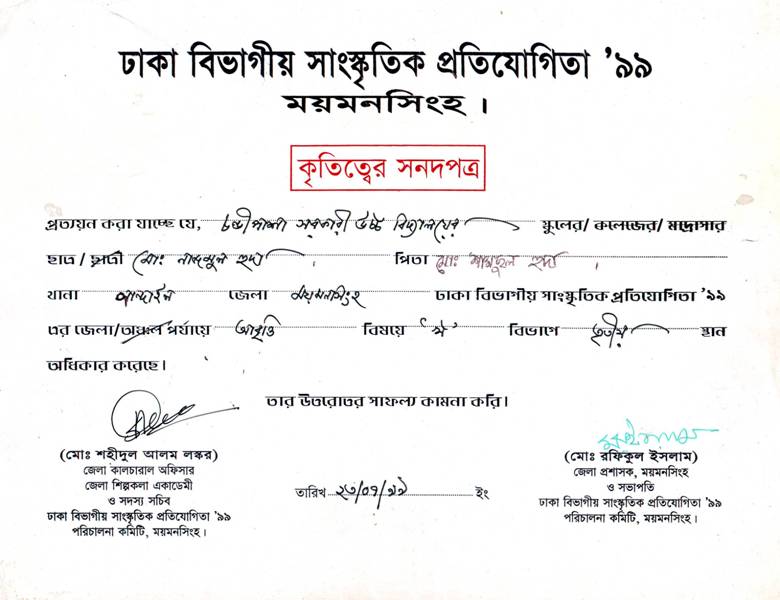 ঢাকা বিভাগীয় সাংস্কৃতিক প্রতিযোগিতা ’৯৯
ময়মনসিংহ।
কৃতিত্বের সনদপত্র
প্রত্যয়ন করা যাচ্ছে যে, চন্ডীপাশা সরকারী উচ্চ বিদ্যালয়ের স্কুলের/ কলেজের/ মাদ্রাসার
ছাত্র / ছাত্রী মোঃ নাজমুল হুদা পিতা মোঃ শামছুল হুদা
থানা নান্দাইল জেলা ময়মনসিংহ ঢাকা বিভাগীয় সাংস্কৃতিক প্রতিযোগিতা ’৯৯
এর জেলা/অঞ্চল পর্যায়ে আবৃত্তি বিষয়ে বিভাগে তৃতীয় স্থান
অধিকার করেছে।
তার উত্তরোত্তর সাফল্য কামনা করি।
(মোঃ শহীদুল আলম লস্কর)
জেলা কালচারাল অফিসার
জেলা শিল্পকলা একাডেমী
ও সদস্য সচিব
ঢাকা বিভাগীয় সাংস্কৃতিক প্রতিযোগিতা ’৯৯
পরিচালনা কমিটি, ময়মনসিংহ।
তারিখ ২৩/০৭/৯৯ ইং
(মোঃ রফিকুল ইসলাম)
জেলা প্রশাসক, ময়মনসিংহ
ও সভাপতি
ঢাকা বিভাগীয় সাংস্কৃতিক প্রতিযোগিতা ’৯৯
পরিচালনা কমিটি, ময়মনসিংহ।